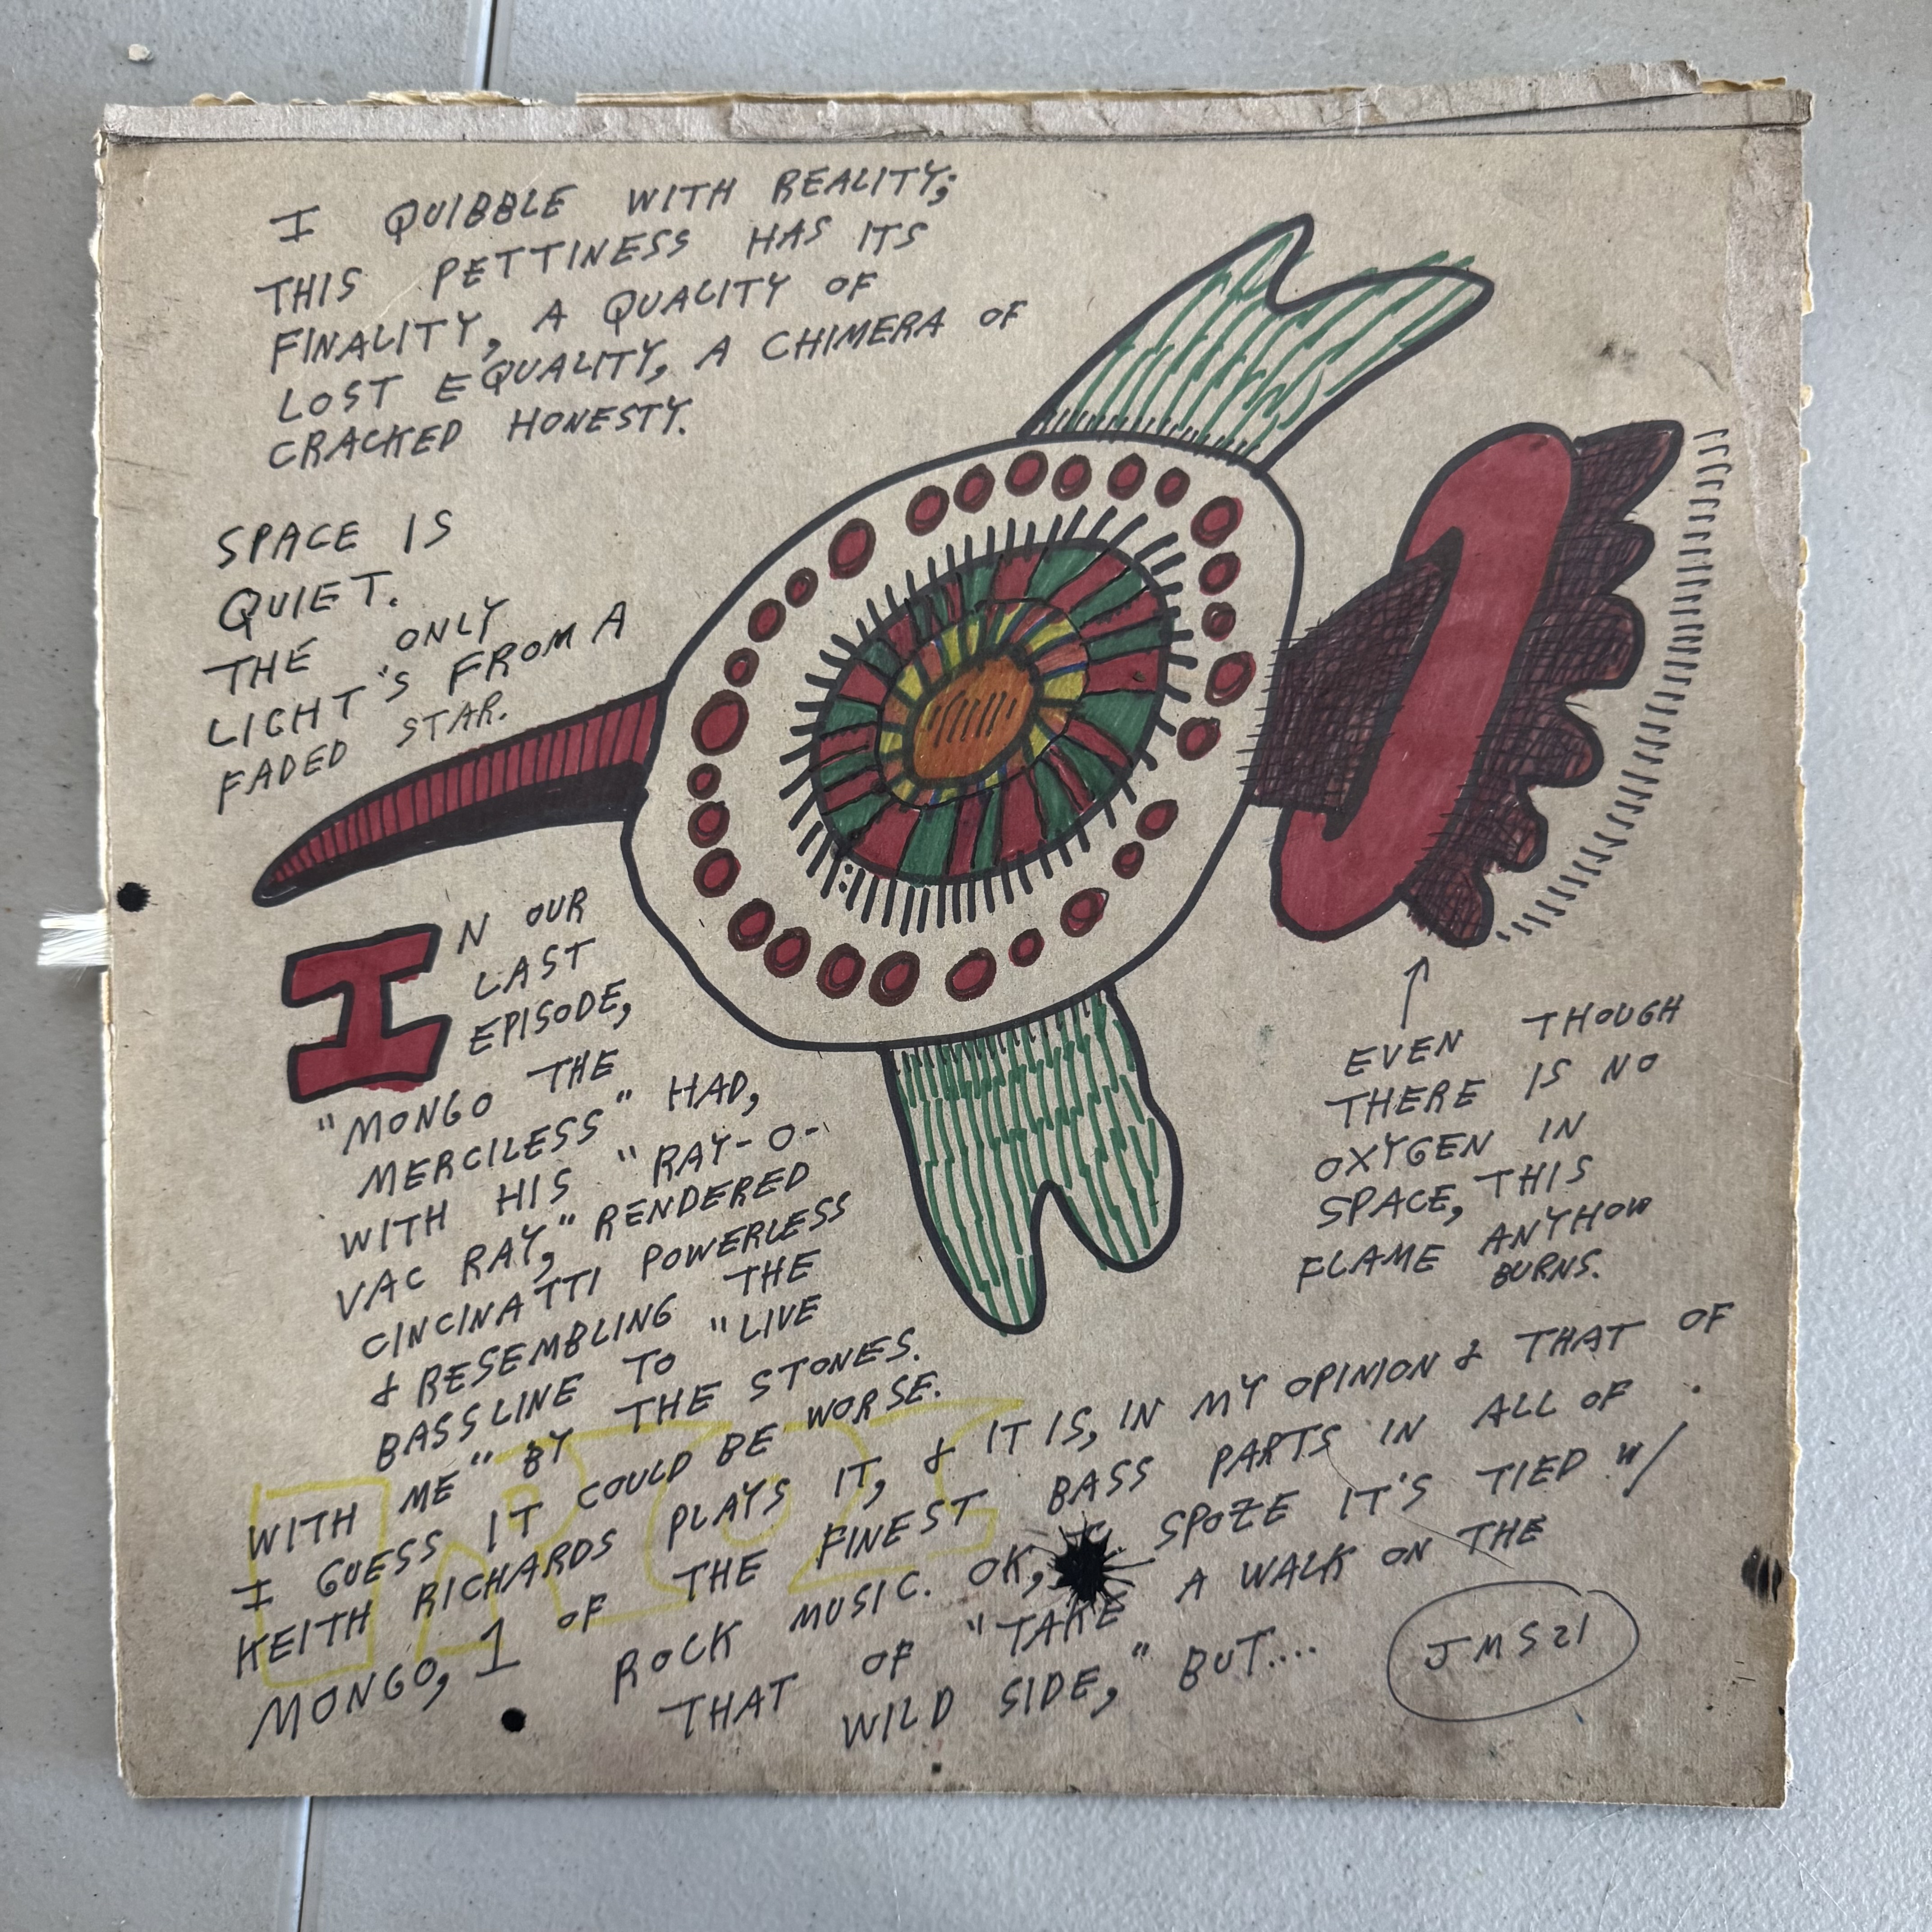 I QUIBBLE WITH REALITY;
THIS PETTINESS HAS ITS
FINALITY, A QUALITY OF
LOST EQUALITY, A CHIMERA OF
CRACKED HONESTY.
SPACE IS
QUIET.
THE ONLY
LIGHT'S FROM A
FADED STAR.
IN OUR
LAST
EPISODE,
"MONGO THE
MERCILESS" HAD,
WITH HIS "RAY-O-
VAC RAY," RENDERED
CINCINATTI POWERLESS
& RESEMBLING THE
BASSLINE TO "LIVE
WITH ME" BY THE STONES.
I GUESS IT COULD BE WORSE.
KEITH RICHARDS PLAYS IT, & IT IS, IN MY OPINION & THAT OF
MONGO, 1 OF THE FINEST BASS PARTS IN ALL OF
ROCK MUSIC. OK, SPOZE IT'S TIED W/
THAT OF "TAKE A WALK ON THE
WILD SIDE," BUT....
EVEN THOUGH
THERE IS NO
OXYGEN IN
SPACE, THIS
FLAME ANYHOW
BURNS.
JMS21